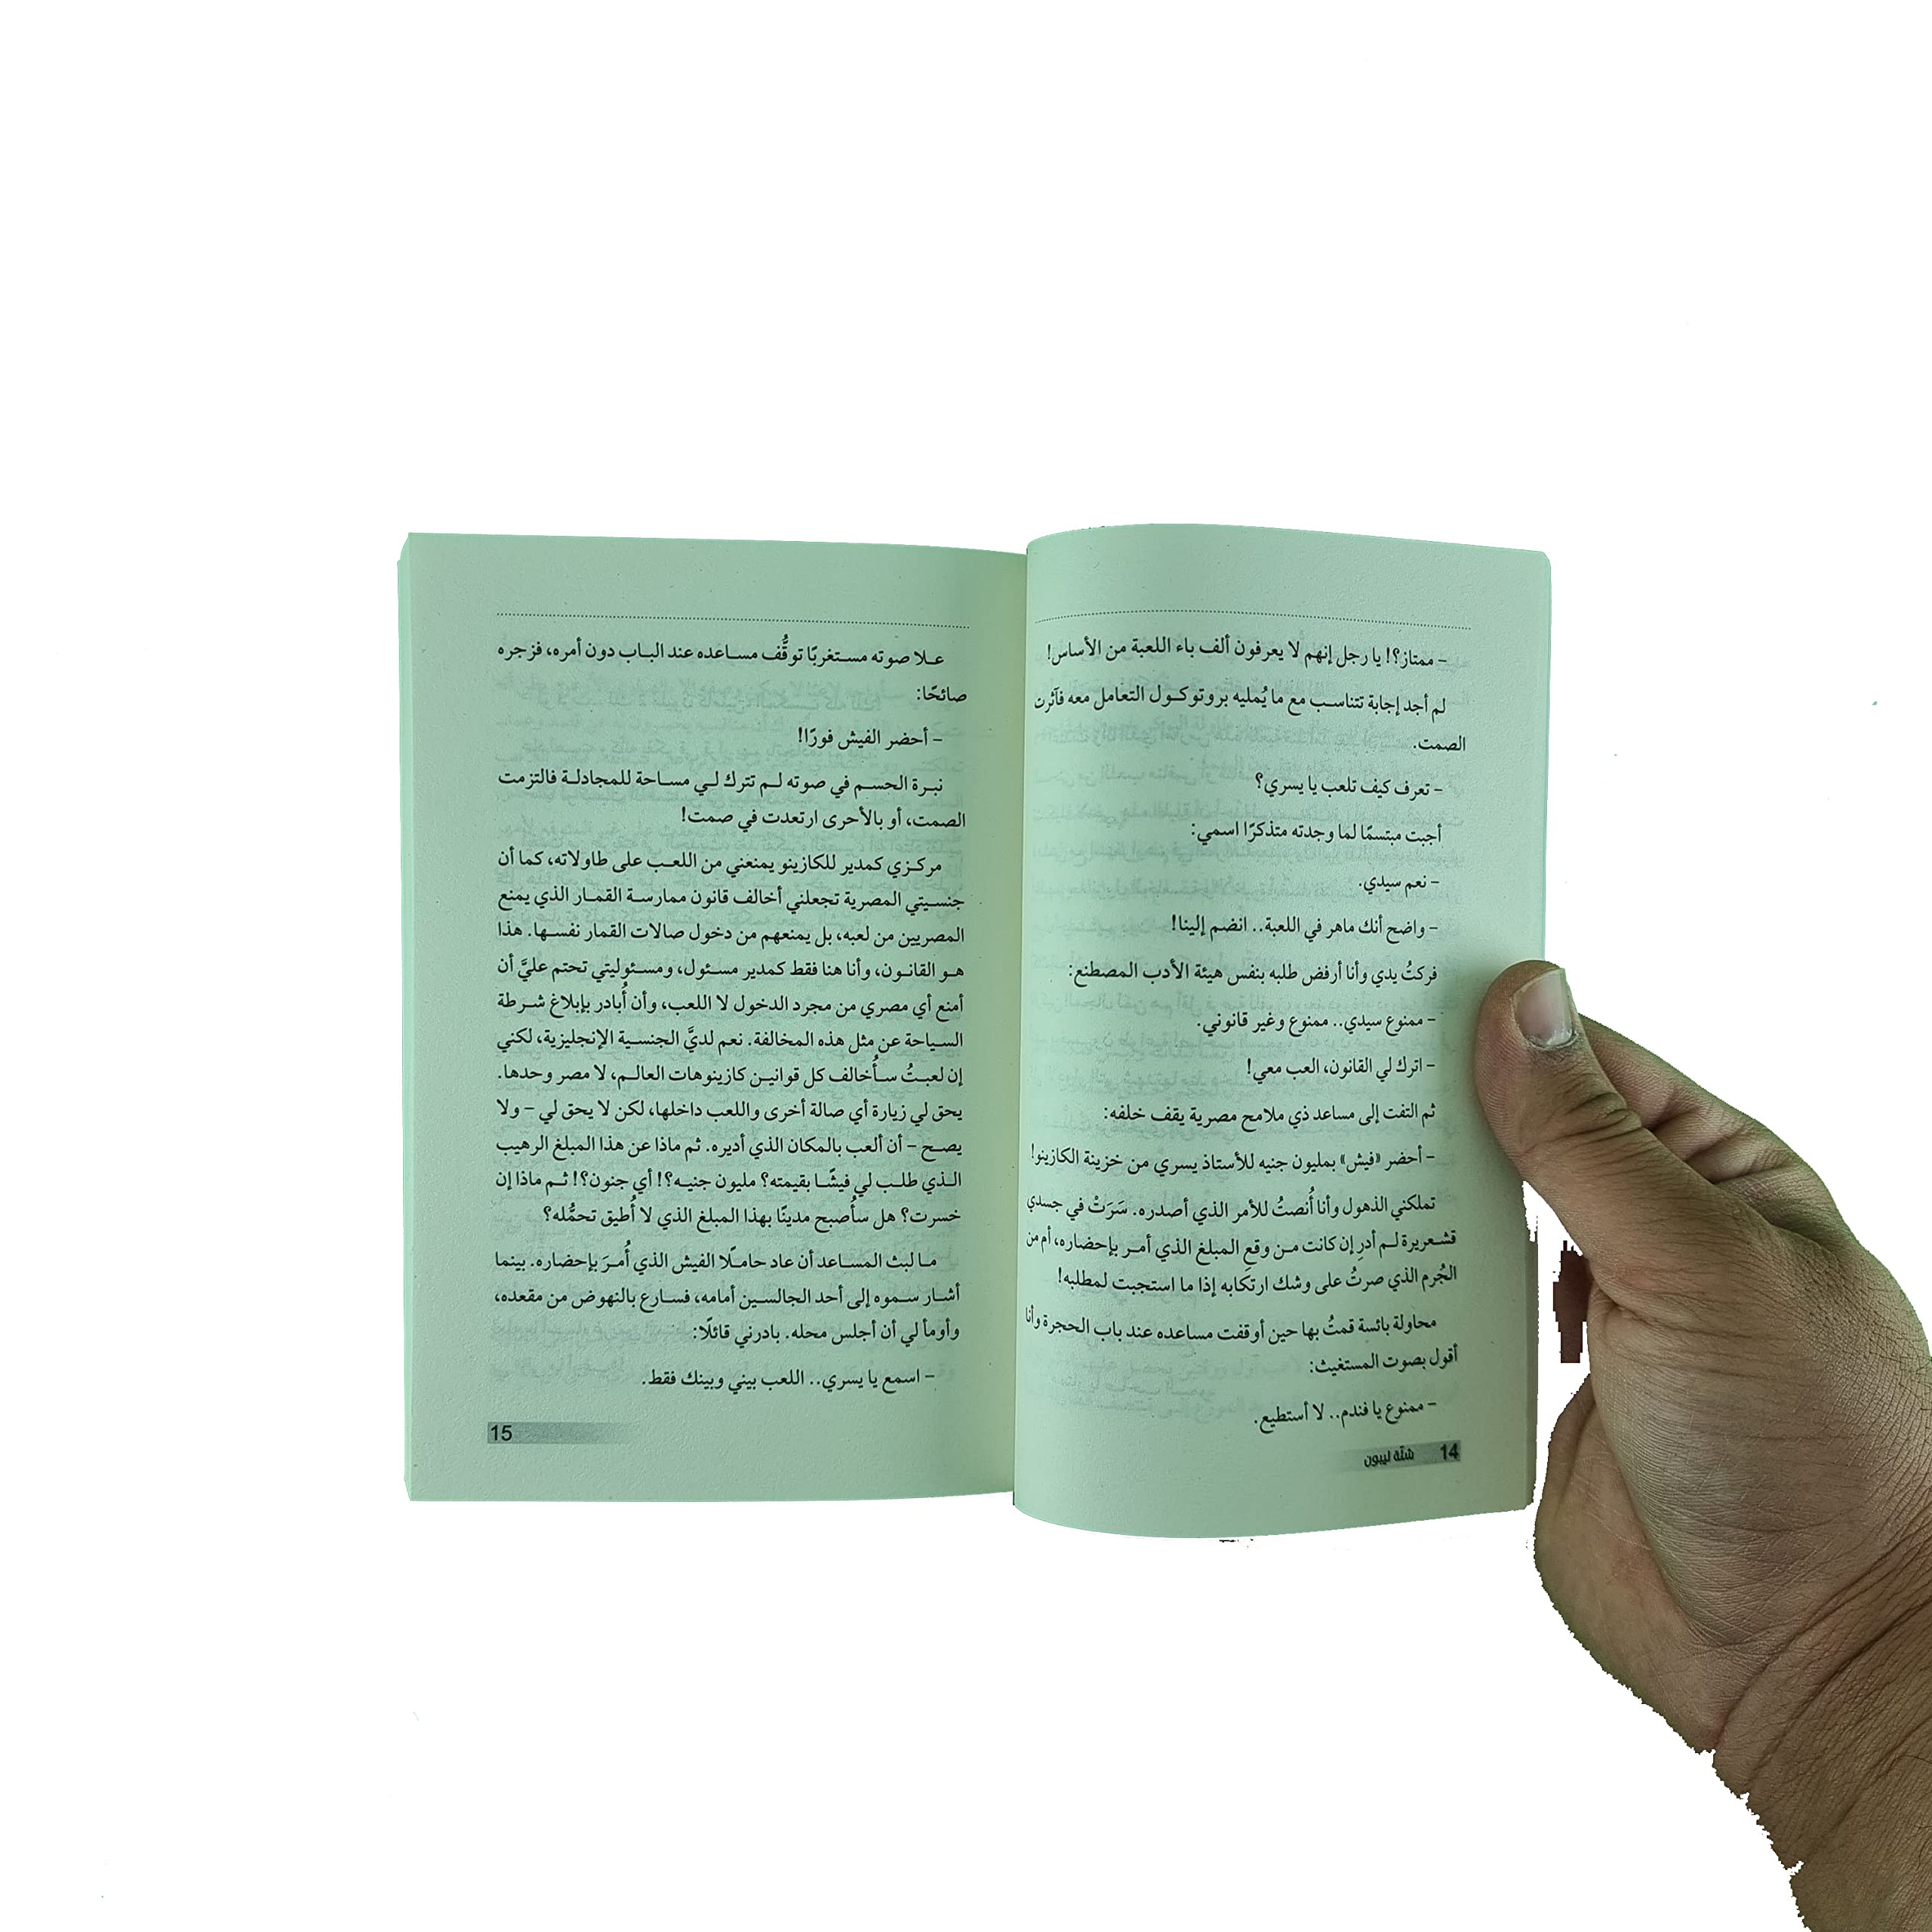 – ممتاز؟! يا رجل إنهم لا يعرفون ألف باء اللعبة من الأساس!
لم أجد إجابة تتناسب مع ما يُمليه بروتوكول التعامل معه فآثرت
الصمت.
– تعرف كيف تلعب يا يسري؟
أجبت مبتسمًا لما وجدته متذكرًا اسمي:
– نعم سيدي.
– واضح أنك ماهر في اللعبة.. انضم إلينا!
فركتُ يدي وأنا أرفض طلبه بنفس هيئة الأدب المصطنع:
– ممنوع سيدي.. ممنوع وغير قانوني.
– اترك لي القانون، العب معي!
ثم التفت إلى مساعد ذي ملامح مصرية يقف خلفه:
– أحضر «فيش» بمليون جنيه للأستاذ يسري من خزينة الكازينو!
تملكني الذهول وأنا أُنصتُ للأمر الذي أصدره. سَرَتْ في جسدي
قشعريرة لم أدرِ إن كانت من وقع المبلغ الذي أمر بإحضاره، أم من
الجُرم الذي صرتُ على وشك ارتكابه إذا ما استجبت لمطلبه!
محاولة بائسة قمتُ بها حين أوقفت مساعده عند باب الحجرة وأنا
أقول بصوت المستغيث:
– ممنوع يا فندم.. لا أستطيع.
14 شلة ليبون
علا صوته مستغربًا توقُّف مساعده عند الباب دون أمره، فزجره
صائحًا:
– أحضر الفيش فورًا!
نبرة الحسم في صوته لم تترك لي مساحة للمجادلة فالتزمت
الصمت، أو بالأحرى ارتعدت في صمت!
مركزي كمدير للكازينو يمنعني من اللعب على طاولاته، كما أن
جنسيتي المصرية تجعلني أخالف قانون ممارسة القمار الذي يمنع
المصريين من لعبه، بل يمنعهم من دخول صالات القمار نفسها. هذا
هو القانون، وأنا هنا فقط كمدير مسئول، ومسئوليتي تحتم عليَّ أن
أمنع أي مصري من مجرد الدخول لا اللعب، وأن أُبادر بإبلاغ شرطة
السياحة عن مثل هذه المخالفة. نعم لديَّ الجنسية الإنجليزية، لكني
إن لعبتُ سأُخالف كل قوانين كازينوهات العالم، لا مصر وحدها.
يحق لي زيارة أي صالة أخرى واللعب داخلها، لكن لا يحق لي – ولا
يصح – أن ألعب بالمكان الذي أديره. ثم ماذا عن هذا المبلغ الرهيب
الذي طلب لي فيشًا بقيمته؟ مليون جنيه؟! أي جنون؟! ثم ماذا إن
خسرت؟ هل سأُصبح مدينًا بهذا المبلغ الذي لا أُطيق تحمُّله؟
ما لبث المساعد أن عاد حاملًا الفيش الذي أُمرَ بإحضاره. بينما
أشار سموه إلى أحد الجالسين أمامه، فسارع بالنهوض من مقعده،
وأومأ لي أن أجلس محله. بادرني قائلًا:
– اسمع يا يسري.. اللعب بيني وبينك فقط.
15